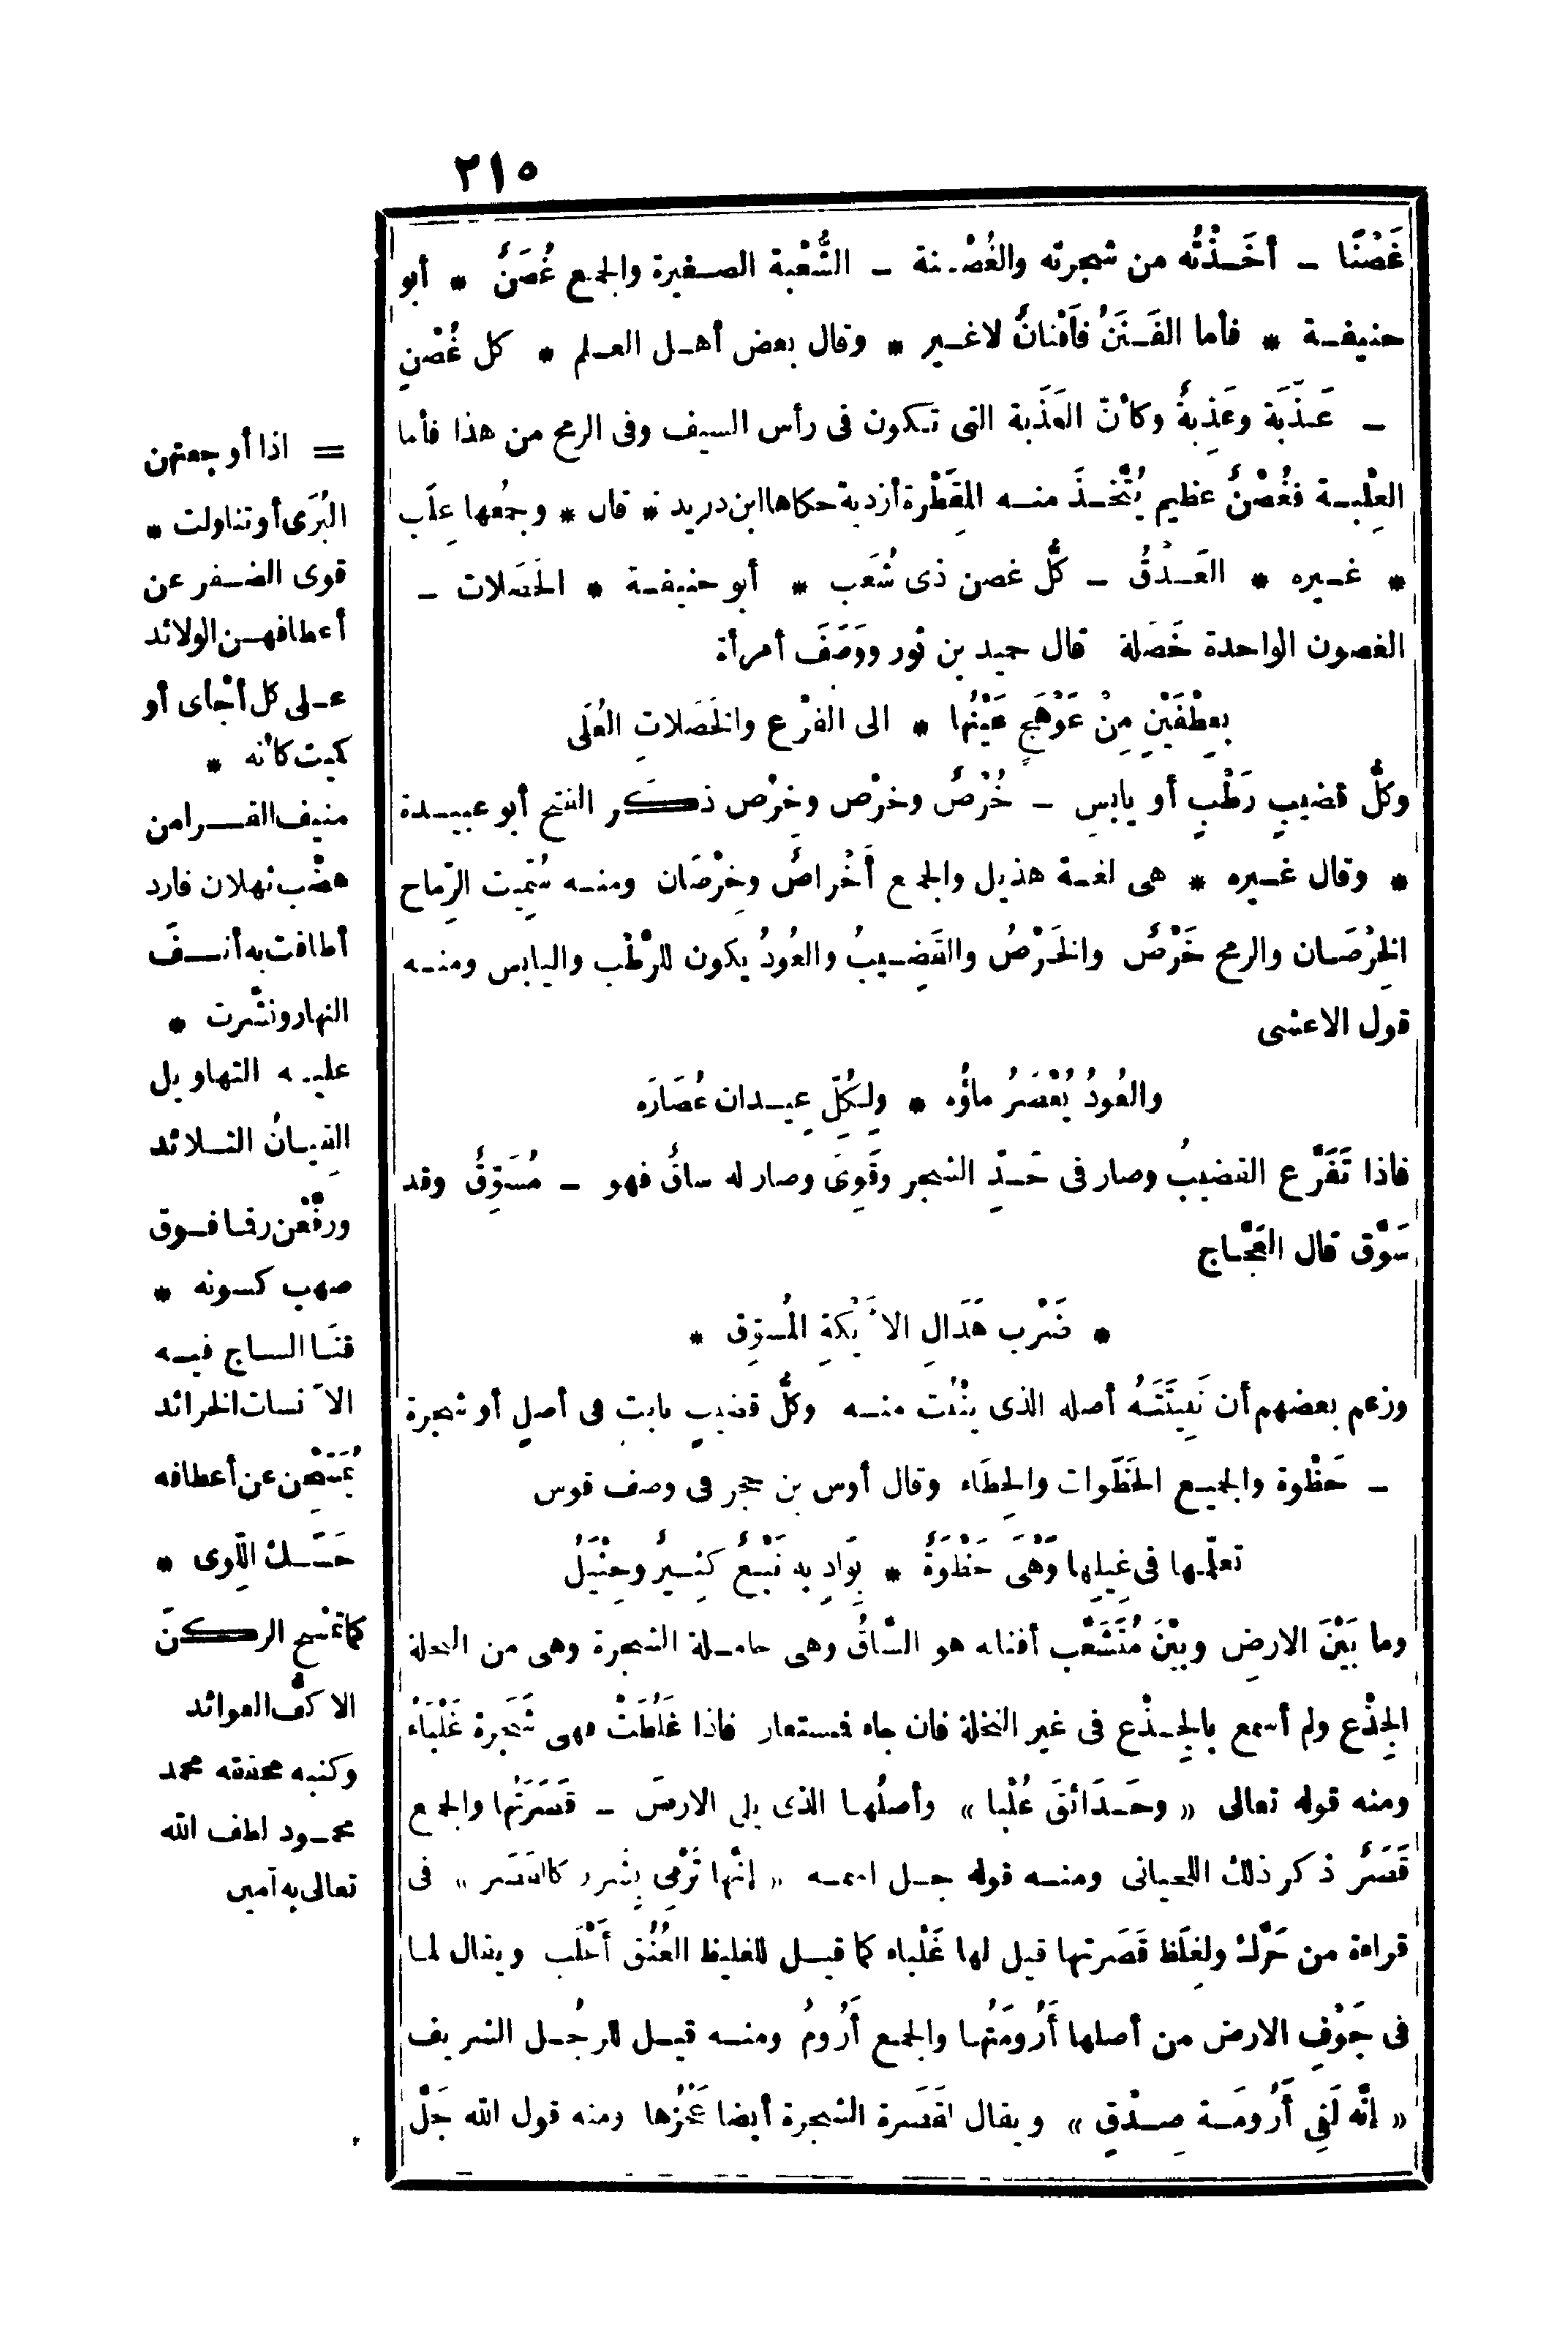 ٢١٥
غَصْنًا ــ أخَــذْتُه من شجرته والغُصْنة ــ الشُّعْبة الصغيرة والجمع غُصَنٌ * أبو
حنيفة * فأما الفَنَنُ فأَفْنانٌ لاغير * وقال بعض أهل العلم * كل غُصْنٍ
ــ عَذَبَة وعَذِبةٌ وكأنّ العَذَبة التى تكون فى رأس السيف وفى الرمح من هذا فأما
العِلْبة فغُصْنٌ عظيم يُتَّخذَ منه المِقْطَرة أزدية حكاها ابن دريد * قال * وجمُعها عِلَب
* غيره * العَذْقُ ــ كلُّ غصن ذى شُعَب * أبو حنيفة * الخَصَلات ــ
الغصون الواحدة خَصَلة قال حميد بن ثور ووَصَفَ أمرأة
بِعِطْفَيْنِ مِنْ عَوْهَجٍ عَيْنُها * الى الفَرْع والخَصَلاتِ العُلَى
وكلُّ قضيبٍ رَطْبٍ أو يابسٍ ــ خُرْصٌ وخَرْص وخِرْص ذكر الفتح أبو عبيدة
* وقال غيره * هى لغة هذيل والجمع أَخْراصٌ وخِرْصَان ومنه سُمِّيت الرِّماح
الخِرْصَان والرمح خَرْصٌ والخَرْصُ والقَضِيبُ والعُودُ يكون للرَّطْب واليابس ومنه
قول الاعشى
والعُودُ يُعْصَرُ ماؤُه * ولِكُلِّ عِيدان عُصَارَه
فاذا تَفَرَّع القضيبُ وصار فى حَدِّ الشجر وقَوِىَ وصار له ساقٌ فهو ــ مُسَوِّقٌ وقد
سَوَّق قال العَجَّاج
* ضَرْب هَدَالِ الأَيْكةِ المُسوِّق *
وزعم بعضهم أن نَبِيتَتَهُ أصله الذى ينْبُت منه وكلُّ قضيبٍ نابت فى أصلٍ أو شجرة
ــ حَظْوة والجميع الحَظَوات والحِظَاء وقال أوس بن حجر فى وصف قوس
تعلّمها فى غِيلِها وَهْىَ حَظْوَةٌ * بِوَادٍ به نَبْعٌ كَثِيرٌ وحِثْيَلُ
وما بَيْنَ الارضِ وبيْنَ مُتَشَعَّب أفنانه هو السَّاقُ وهى حاملة الشجرة وهى من النخلة
الجِذْع ولم أسمع بالجِذْع فى غير النخلة فان جاء فمستعار فاذا غَلُظَتْ فهى شَجَرة غَلْبَاءُ
ومنه قوله تعالى « وحَدَائقَ غُلْبا » وأصلُها الذى يلى الارضَ ــ قَصَرَتُها والجمع
قَصَرٌ ذكر ذلك اللحيانى ومنه قوله جل اسمه « إنّها تَرْمِى بِشَرر كالقَصَر » فى
قراءة من حَرَّك ولِغِلَظ قَصَرتها قيل لها غَلْباء كما قيل للغليظ العُنُق أَغْلَب ويقال لما
فى جَوْفِ الارض من أصلها أَرُومَتُها والجمع أَرُومُ ومنه قيل للرجُل الشريف
« إنَّه لَفِى أَرُومَة صِدْقٍ » ويقال لقَصَرة الشجرة أيضا عَجُزُها ومنه قول الله جَلَّ
= اذا أوجعتهن
البُرَى أو تناولت *
قوى الضفر عن
أعطافهن الولائد
على كل أجْأى أو
كميت كأنه *
منيف القرا من
هضْب ثهلان فارد
أطافت به أنفَ
النهار ونشّرت *
عليه التهاويل
القِيانُ التلائد
ورفّعْن رقما فوق
صهب كسونه *
قنَا الساج فيه
الآنسات الخرائد
يُمَسِّحْن عن أعطافه
حَسَك اللِّوى *
كما تمْسَح الركنَ
الاكفُّ العوائد
وكتبه محققه محمد
محمود لطف الله
تعالى به آمين